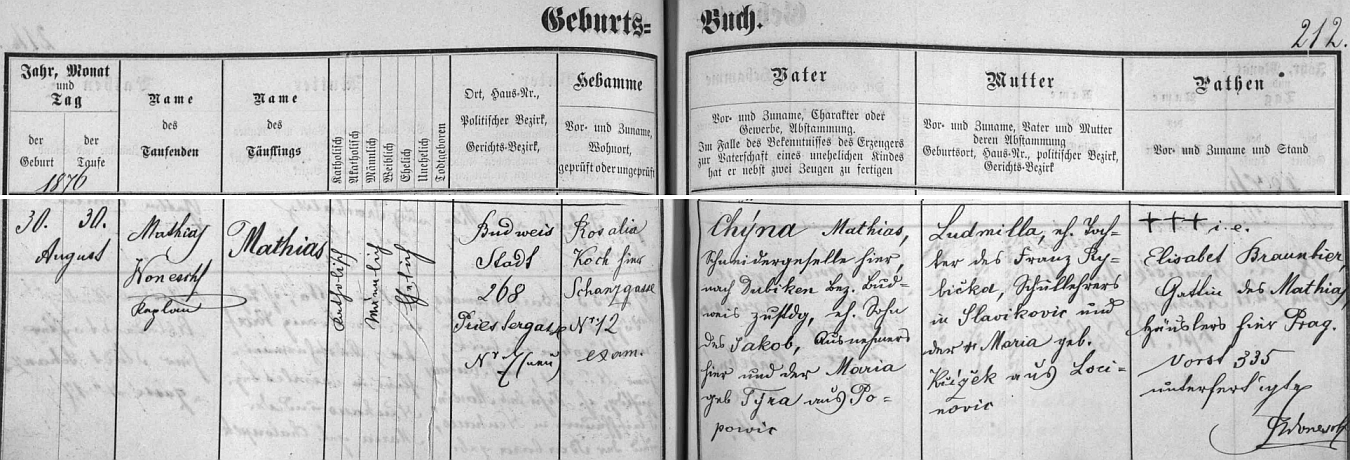 Geburts=Buch.
212.
Jahr, Monat
und
Tag
der
Geburt
der
Taufe
1876
Name
des
Taufenden
Name
des
Täuflings
Katholisch
Akatholisch
Männlich
Weiblich
Ehelich
Unehelich
Todtgeboren
Ort, Haus-Nr.,
Politischer Bezirk,
Gerichts-Bezirk,
Hebamme
Vor- und Zuname,
Wohnort,
geprüft oder ungeprüft
Vater
Vor- und Zuname, Charakter oder
Gewerbe, Abstammung.
Im Falle des Bekenntnisses des Erzeugers
zur Vaterschaft eines unehelichen Kindes
hat er nebst zwei Zeugen zu fertigen
Mutter
Vor- und Zuname, Vater und Mutter
deren Abstammung
Geburtsort, Haus-Nr., politischer Bezirk,
Gerichts-Bezirk
Pathen
Vor- und Zuname und Stand
30. 30.
August
Mathias
Kaplan
Mathias
Katholisch
Männlich
Ehelich
Budweis
Stadt
268
Priestergasse
(neu)
Rosalia
Koch hier
Schanzgasse
Nr 12
exam.
Chýna Mathias,
Schneidergeselle hier
nach Dubiken Bez. Bud-
weis zustdg, eh. Sohn
des Jakob, Ausnehmers
hier und der Maria
geb Týra aus Po-
powic
Ludmilla, eh. Toch-
ter des Franz Ry-
bička, Schullehrers
in Slavikovic und
der Maria geb.
aus Loci-
novic
+++ i. e.
Elisabet Braunbier,
Gattin des Mathias,
Häuslers hier Prag.
Vorst 335
unterfertigte